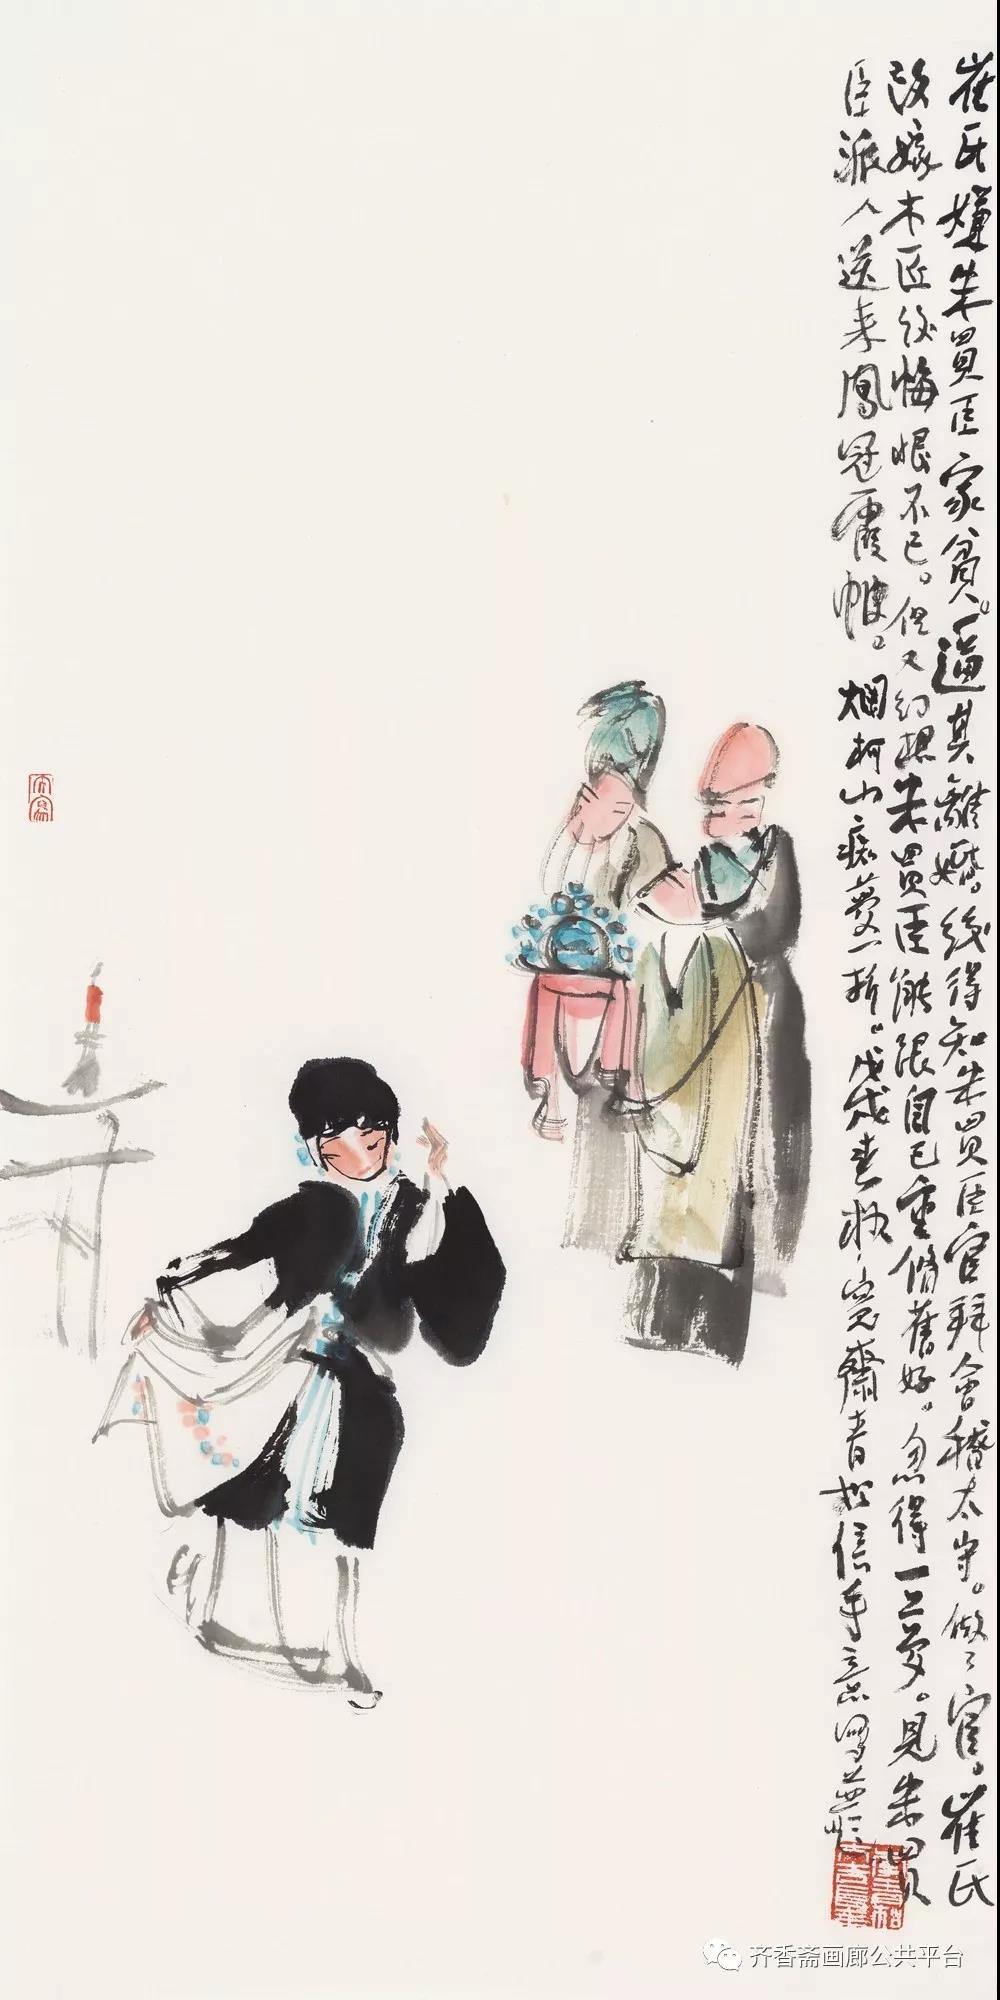 崔氏嫌朱買臣家貧。逼其離婚。後得知朱買臣官拜會稽太守。做了官。崔氏
改嫁木匠後悔恨不已。但又幻想朱買臣能跟自己重脩舊好。忽得一夢。見朱買
臣派人送来鳳冠霞帔。爛柯山痴夢一折。戊戌春秋
齋青松信手
齐香斋画廊公共平台